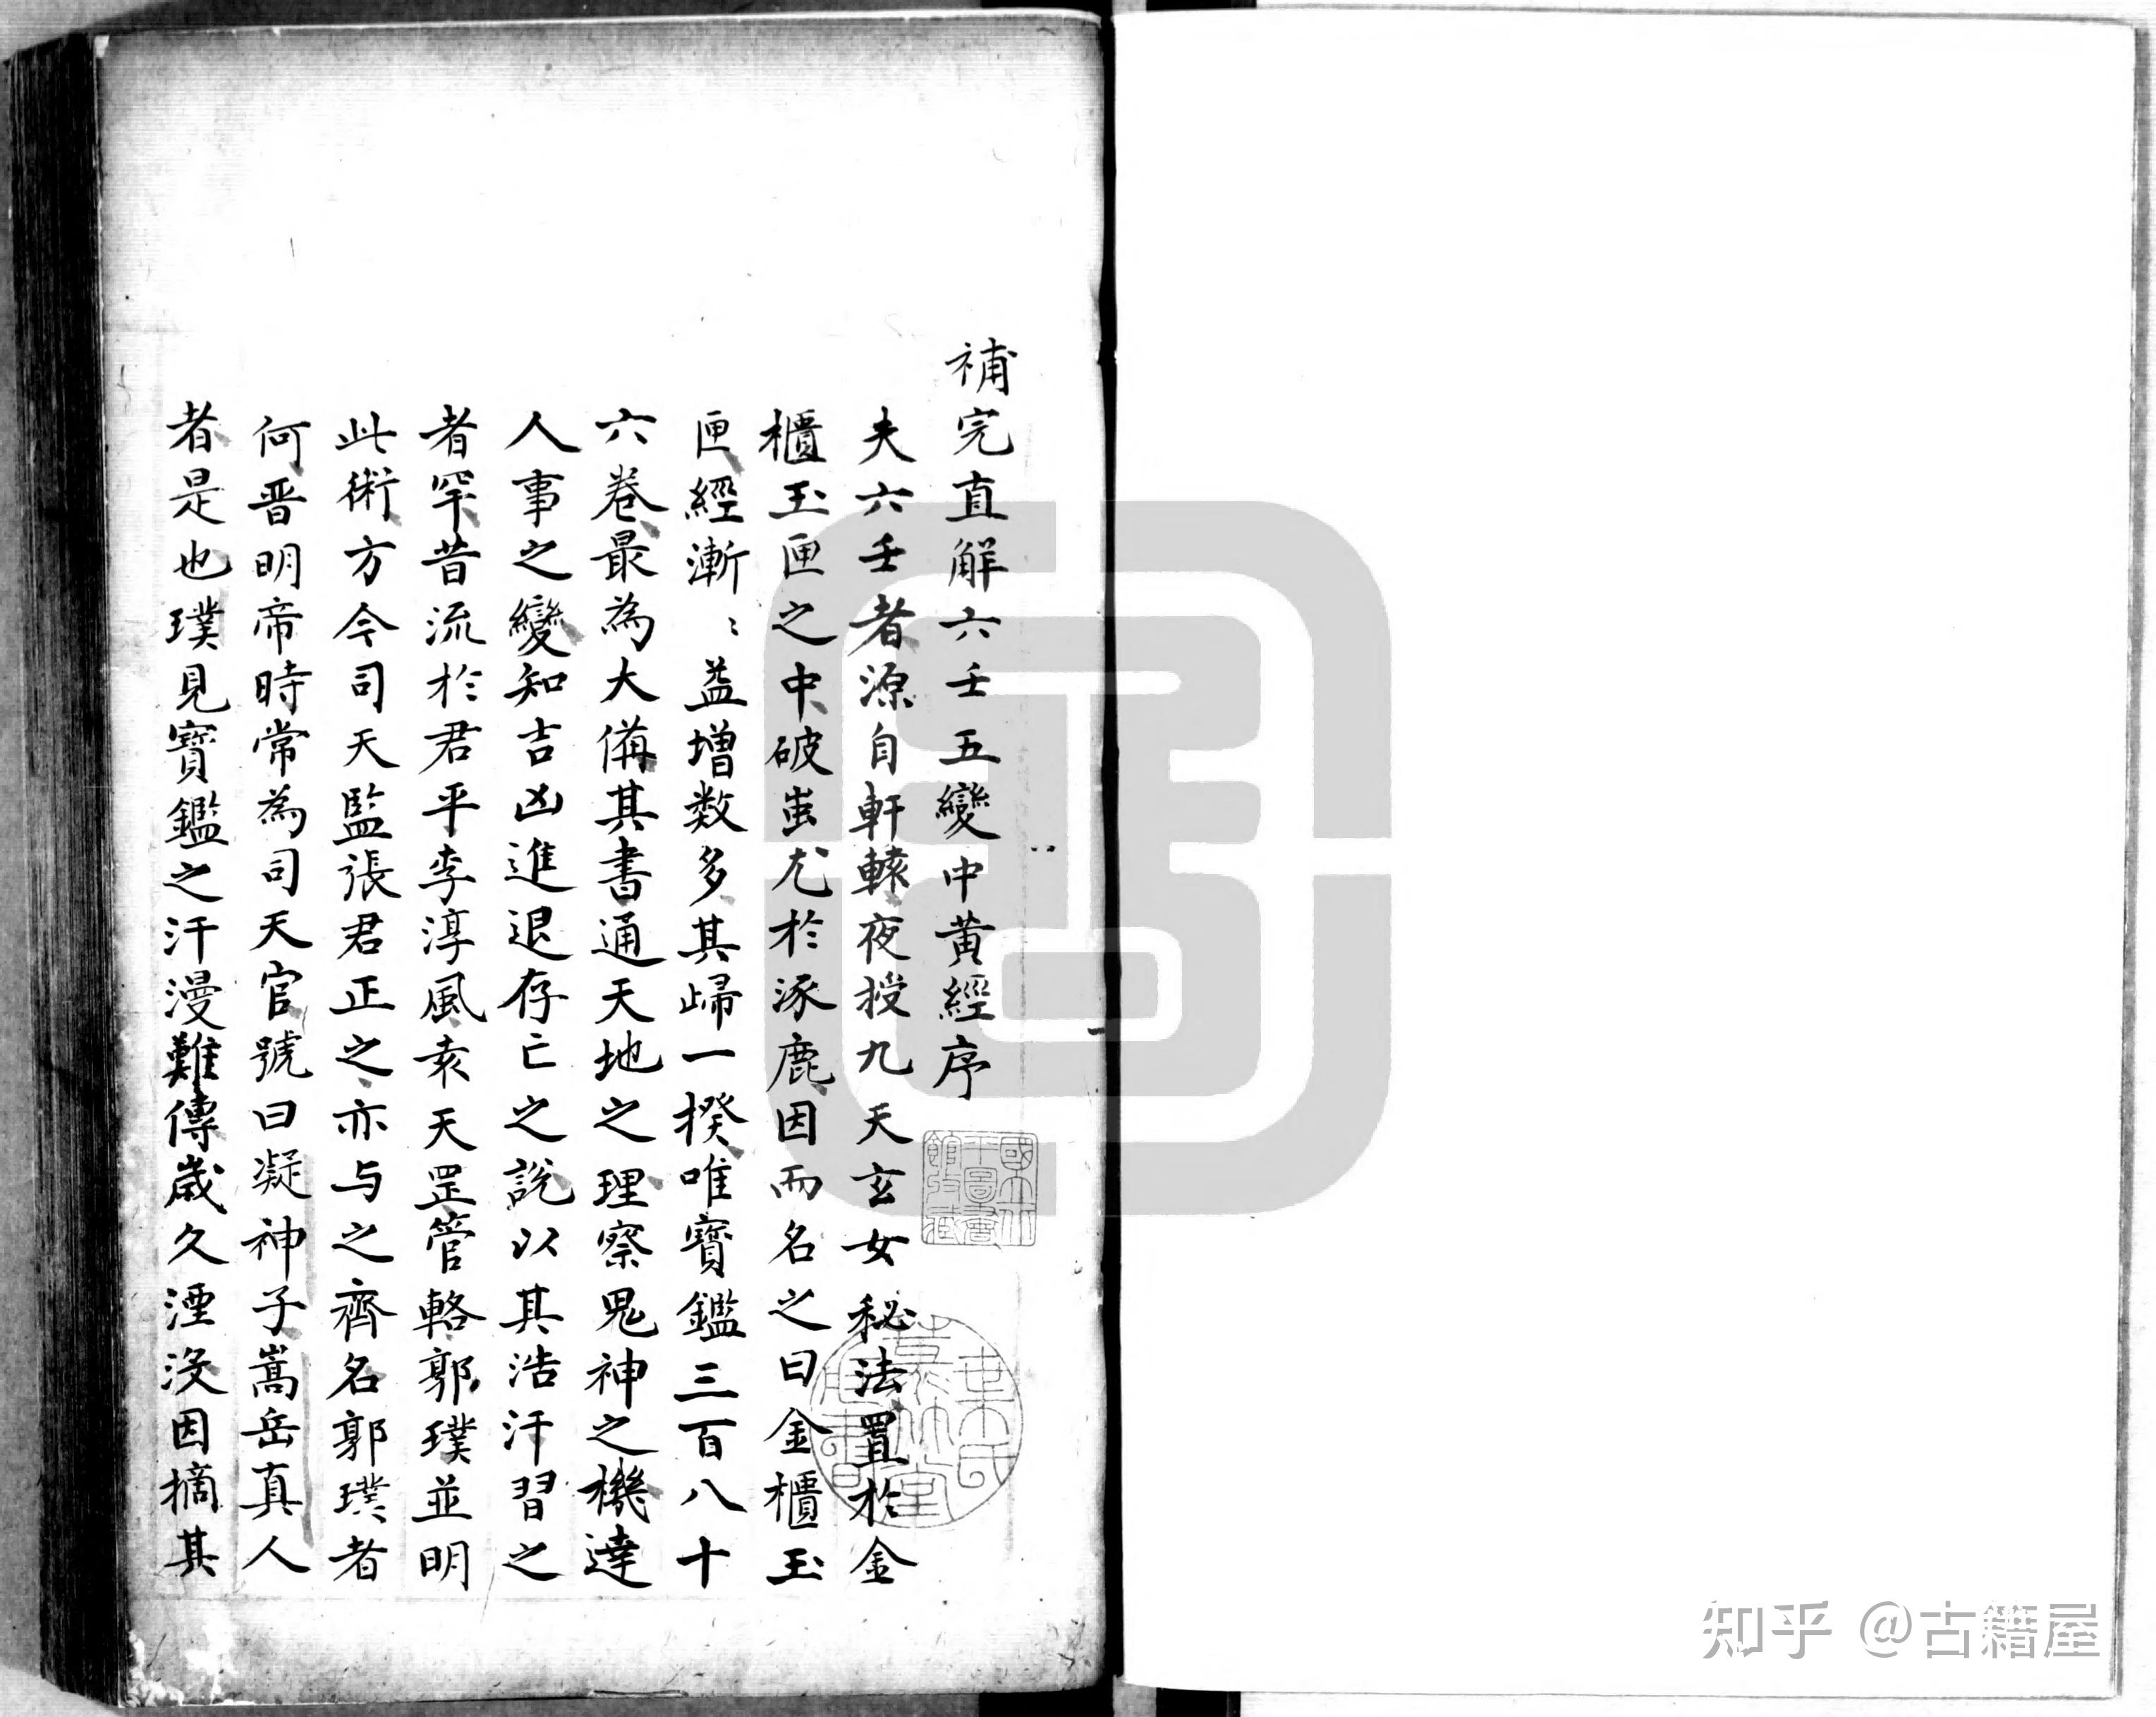 補完直解六壬五變中黄經序
夫六壬者源自軒轅夜授九天玄女秘法置於金
櫃玉匣之中破蚩尤於涿鹿因而名之曰金櫃玉
匣經漸〻益增数多其歸一揆唯寶鑑三百八十
六卷最為大俻其書通天地之理察鬼神之機達
人事之變知吉凶進退存亡之說以其浩汗習之
者罕昔流於君平李淳風袁天罡管輅郭璞並明
此術方今司天監張君正之亦与之齊名郭璞者
何晋明帝時常為司天官號曰凝神子嵩岳真人
者是也璞見寳鑑之汗漫難傳歲久湮没因摘其
國立北
平圖書
館收藏
葉氏
菉竹堂
知乎 @古籍屋